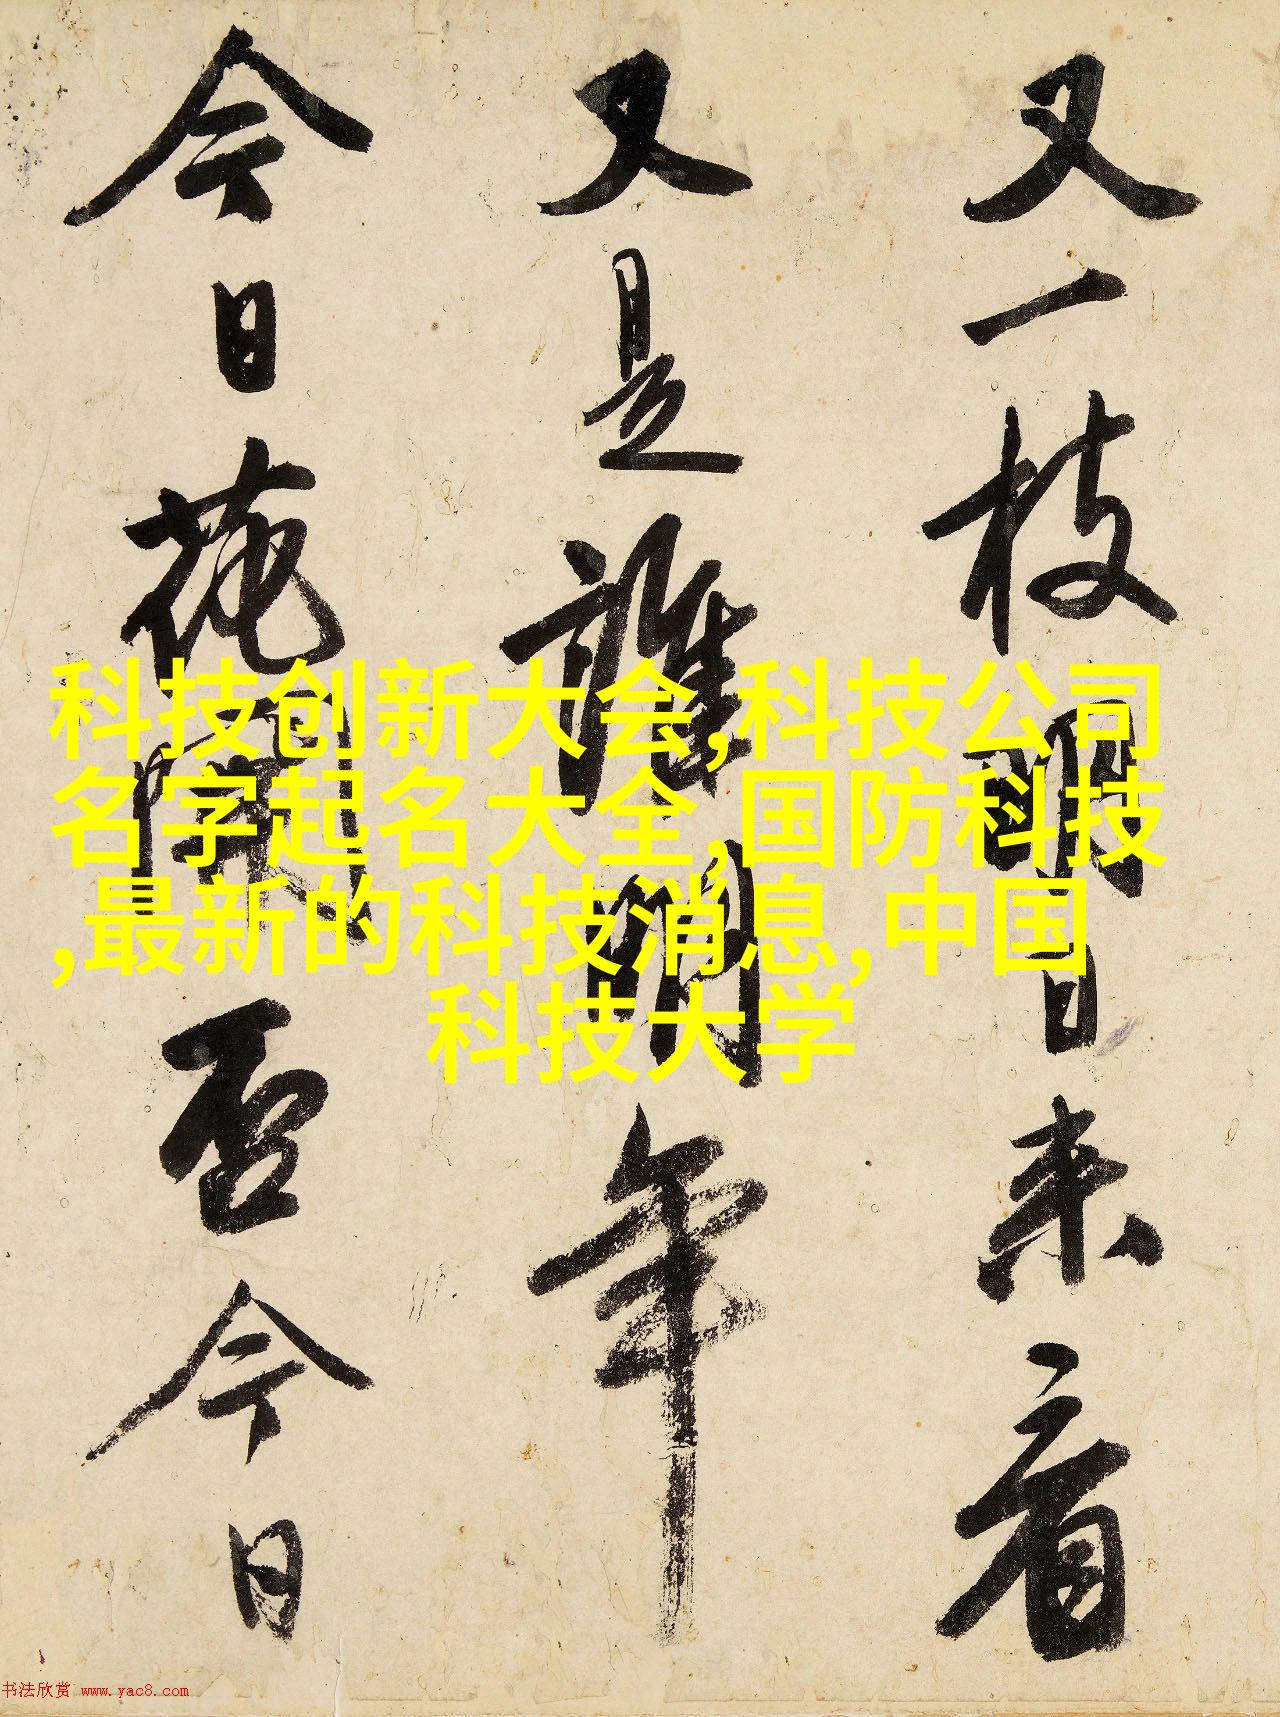 又一枝明日来看
又是誰開年
今日花開否今日
科技创新大会,科技公司
名字起名大全,国防科技
,最新的科技消息,中国
科技大学
书法欣赏 www.yac8.com